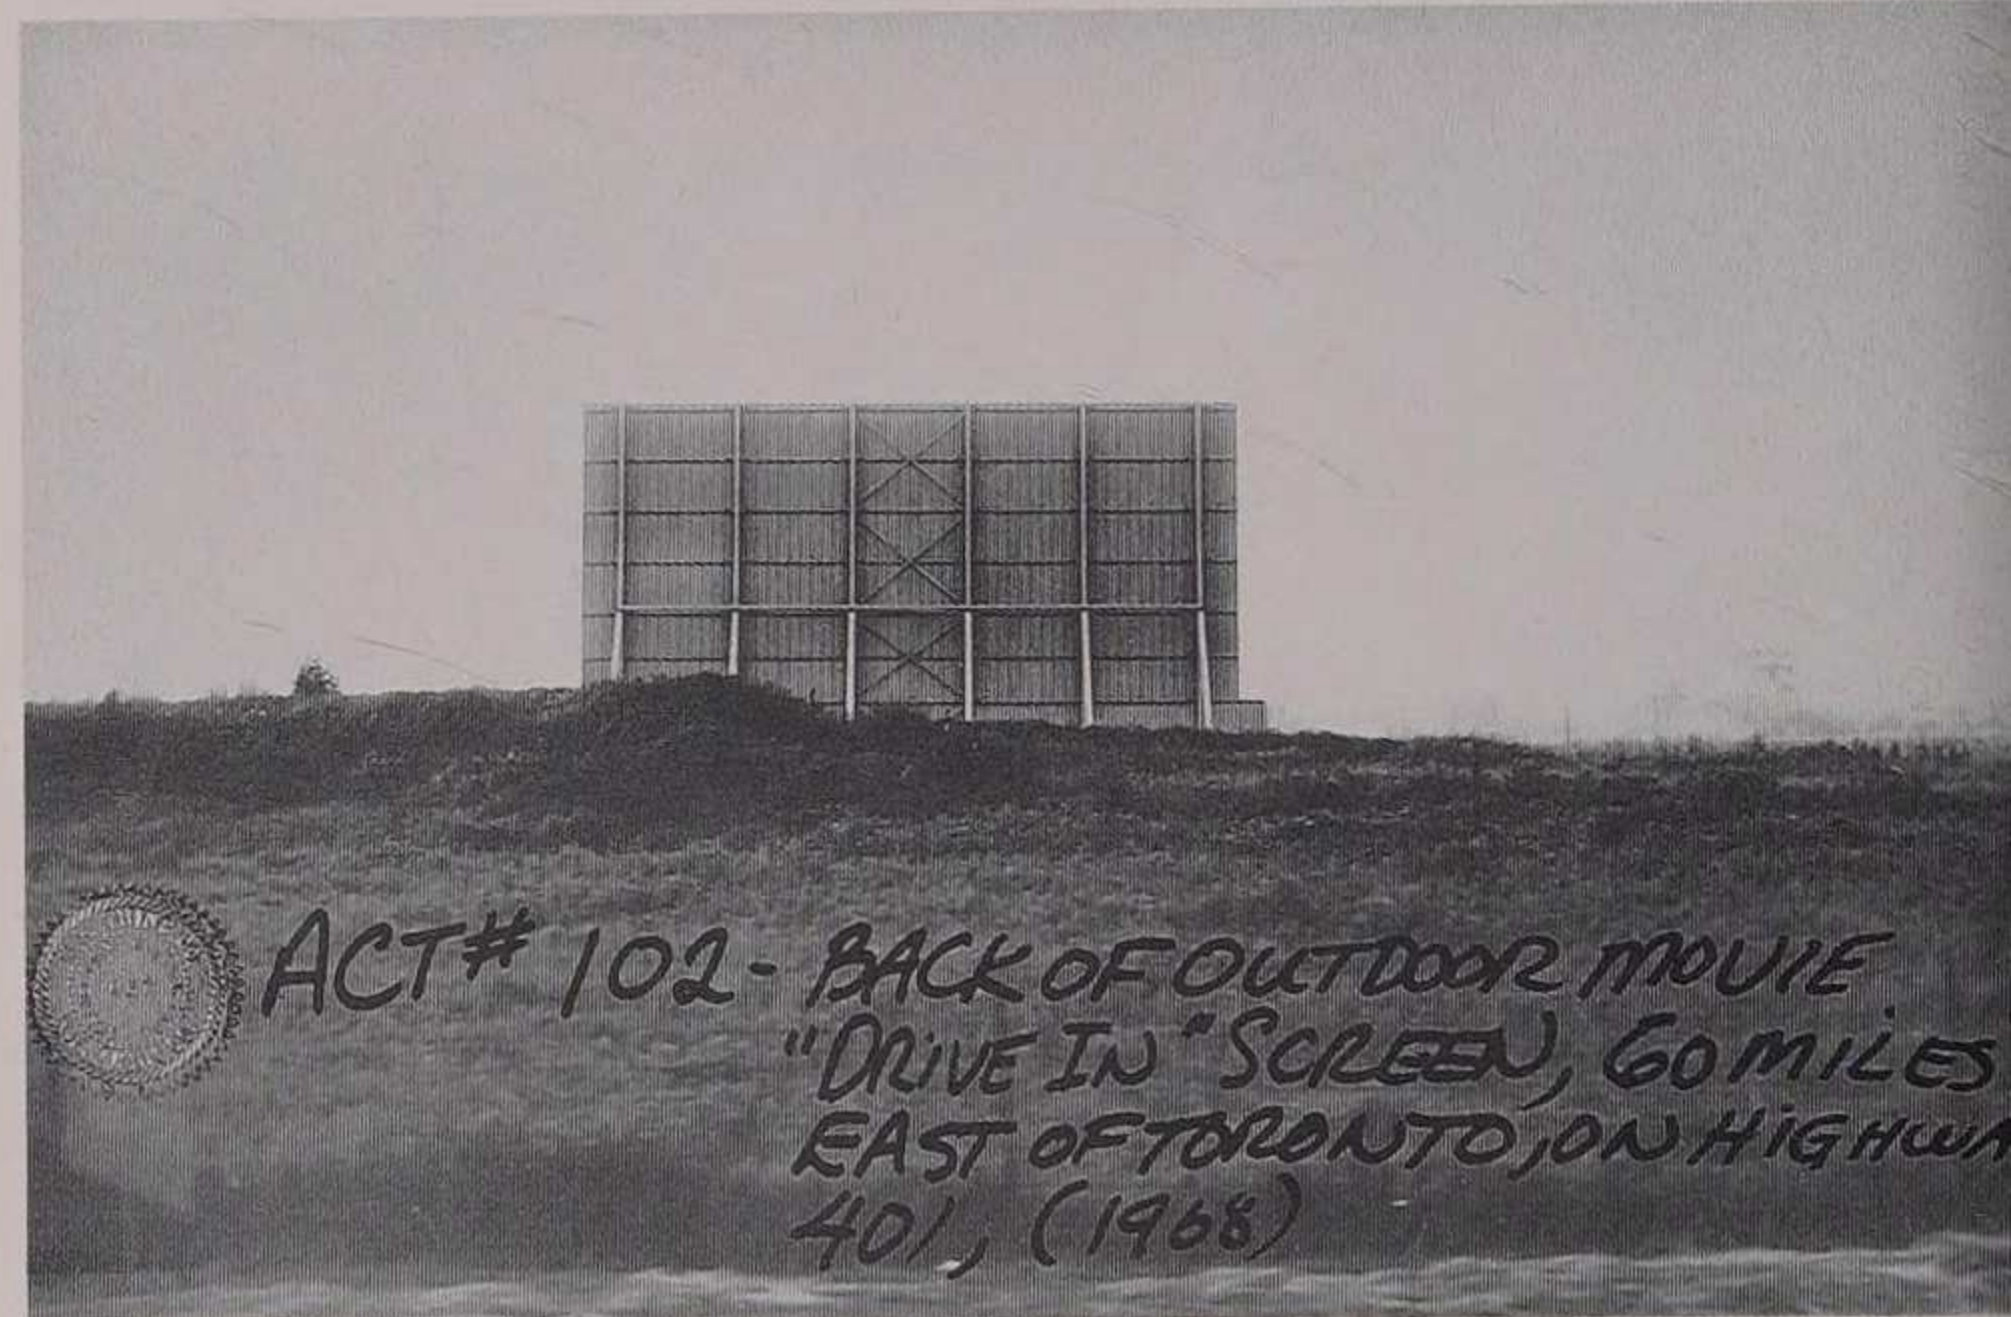 ACT# 102- BACK OF OUTDOOR MOVIE
"DRIVE IN" SCREEN, 60 MILES
EAST OF TORONTO, ON HIGHWA
401, (1968)